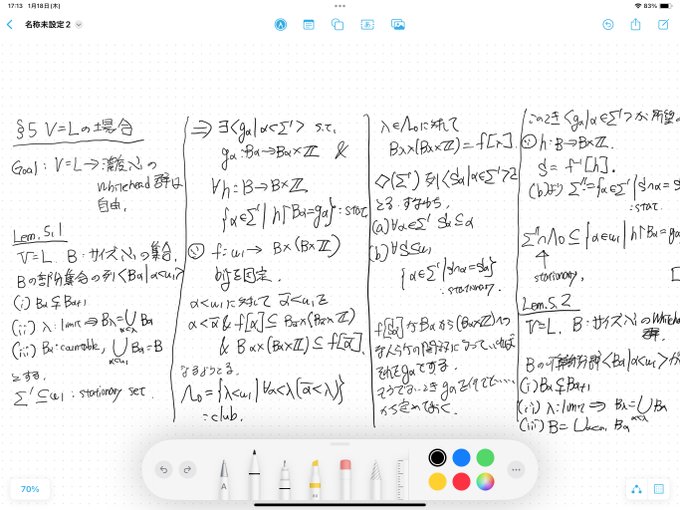 17:13 1月18日(木)
83%
名称未設定 2
§5 V=Lの場合
Goal : V=L → 濃度 ℵ₁ の
Whitehead 群は
自由.
Lem. 5.1
V=L. B : サイズ ℵ₁ の集合.
Bの部分集合の列 <Bα | α<ω₁>
(i) Bα ⊊ Bα+1
(ii) λ: limit ⇒ Bλ = ∪ Bα
α<λ
(iii) Bα: countable, ∪ Bα = B
α<ω₁
とする.
Σ' ⊆ ω₁ : stationary set.
⇒ ∃<gα | α∈Σ'> s.t.
gα: Bα → Bα×ℤ &
∀h: B → B×ℤ,
{α∈Σ' | h↾Bα = gα} : stat.
∵ f: ω₁ → B×(B×ℤ)
bijを固定.
α<ω₁ に対して ᾱ<ω₁ を
α<ᾱ & f[α] ⊆ Bᾱ×(Bᾱ×ℤ)
& Bα×(Bα×ℤ) ⊆ f[ᾱ].
なるようとる.
Λ₀ = {λ<ω₁ | ∀α<λ (ᾱ<λ)}
: club.
λ∈Λ₀ に対して
Bλ×(Bλ×ℤ) = f[λ].
◇(Σ') 列 <Sα | α∈Σ'> を
とる. すなわち,
(a) ∀α∈Σ' Sα ⊆ α
(b) ∀S⊆ω₁
{α∈Σ' | S∩α = Sα}
: stationary.
f[Sα] が Bαから(Bα×ℤ)への
なんらかの関数になっていれば
それを gα とする.
そうでないとき gα は
から定めておく.
このとき <gα | α∈Σ'> が 所望の
∵ h: B → B×ℤ.
S = f⁻¹[h].
(b)より Σ'' = {α∈Σ' | S∩α =
: stat.
Σ''∩Λ₀ ⊆ {α∈ω₁ | h↾Bα = gα
↑
stationary.
Lem. 5.2
V=L, B : サイズ ℵ₁ の Whitehead
群.
Bの 部分群列 <Bα | α<ω₁> が
(i) Bα ⊊ Bα+1
(ii) λ: limit ⇒ Bλ = ∪ Bα
α<λ
(iii) B = ∪α<ω₁ Bα
70%